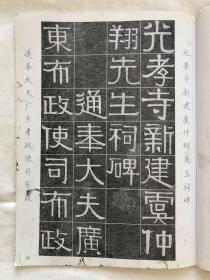 光孝寺新建虞仲翔先生祠碑
光孝寺新建虞仲
翔先生祠碑
通奉大夫廣
東布政使司布政
通奉大夫广东布政使司布政